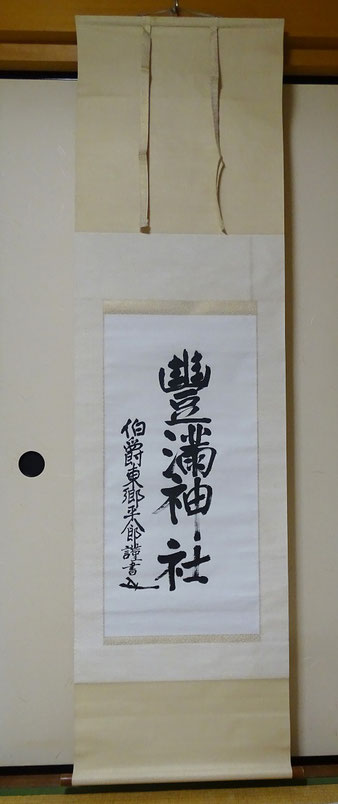 豐滿神社
伯爵東郷平八郎謹書